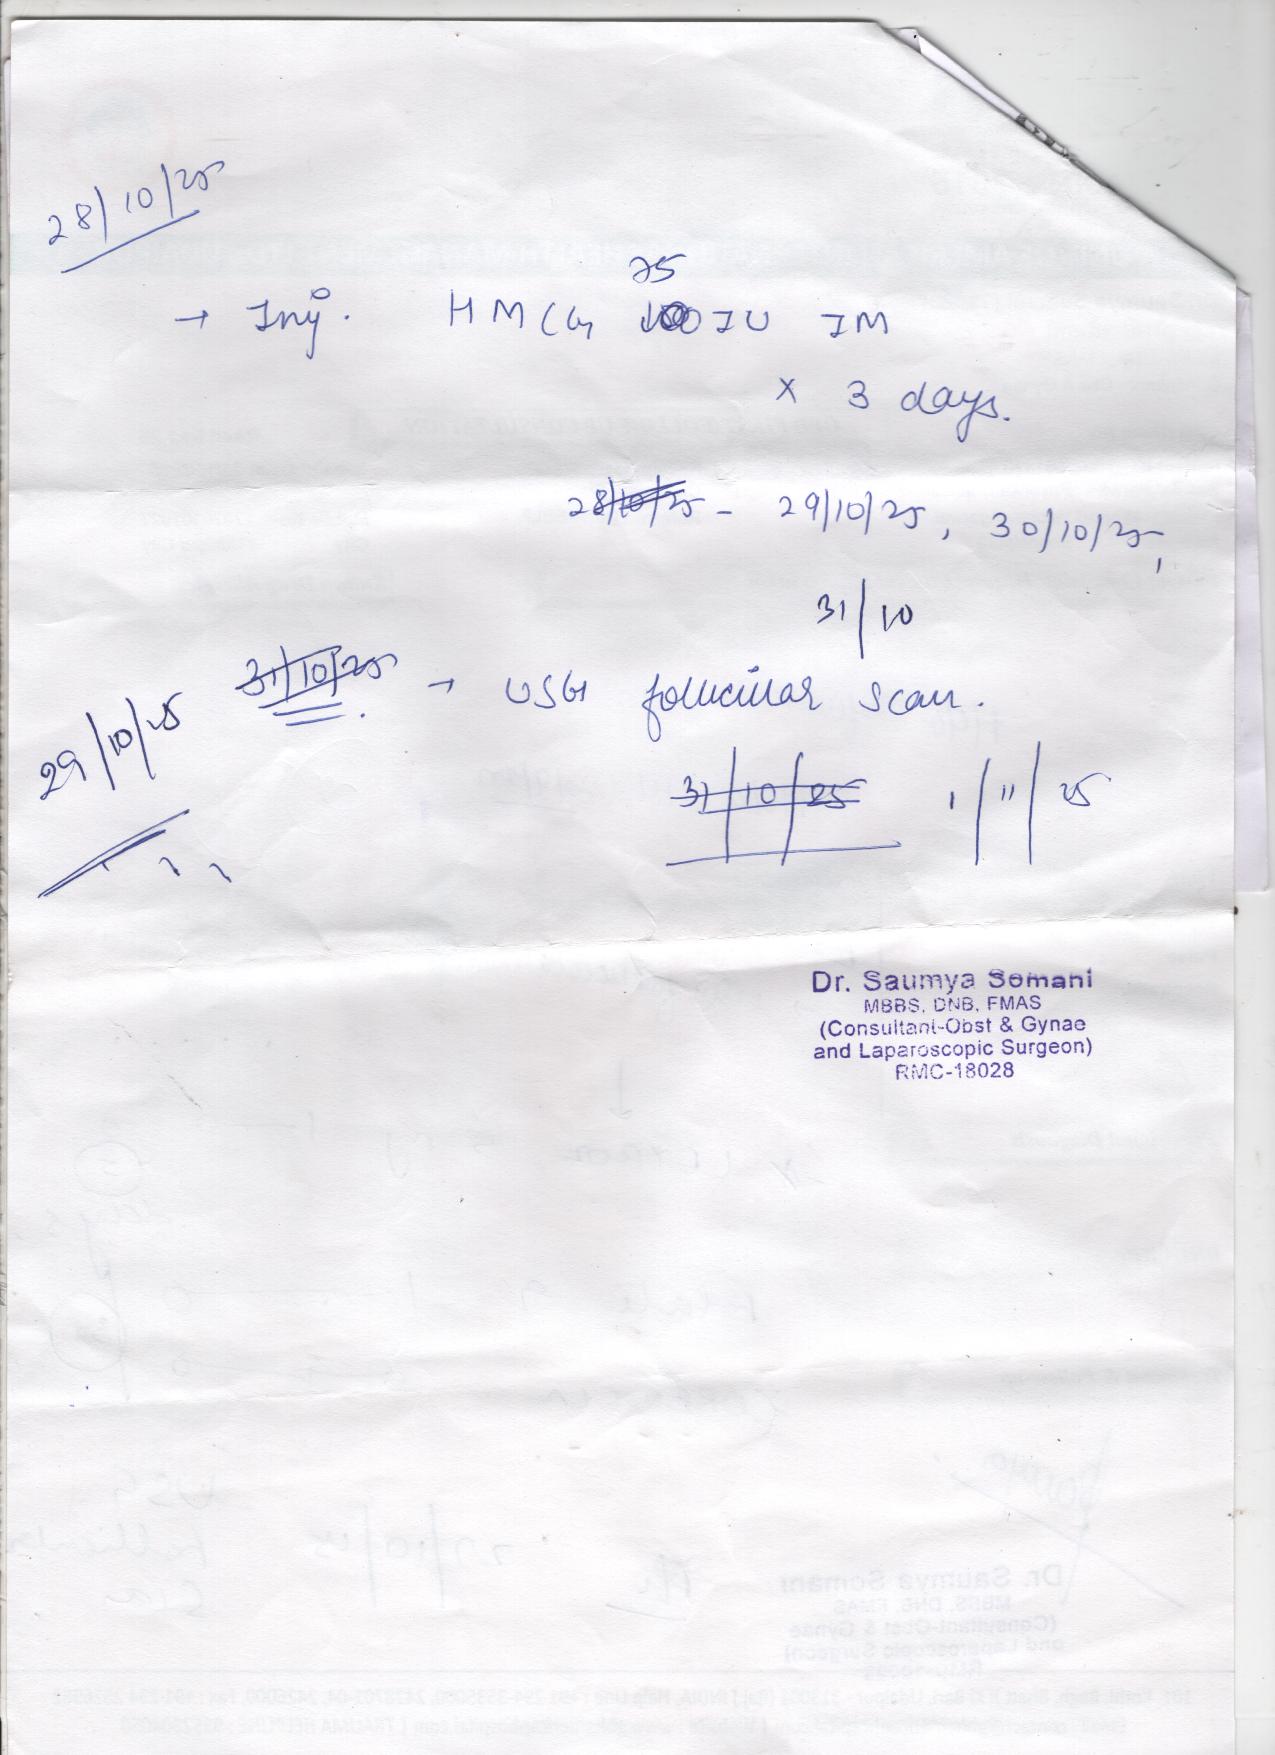 28/10/25
75
→ Inj. HMCG 100 IU IM
x 3 days.
28/10/25 - 29/10/25, 30/10/25,
31/10
31/10/25 → USG follicular scan.
29/10/25
31/10/25 1/11/25
Dr. Saumya Somani
MBBS, DNB, FMAS
(Consultant-Obst & Gynae
and Laparoscopic Surgeon)
RMC-18028